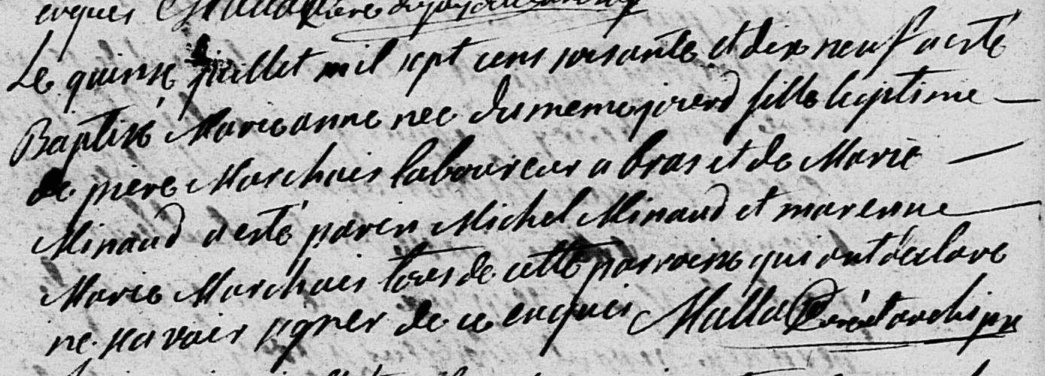 enquis
Le quinse juillet mil sept cens soisante et dix neuf a esté
Baptisé Marie anne nee du meme jour d fille legitime
de piere Marchais laboureur a bras et de Marie
Minaud a esté parin Michel Minaud et marenne
Marie Marchais tous de cette parroise qui ont declare
ne savoir signer de ce enquis Mallat Curé et archipr